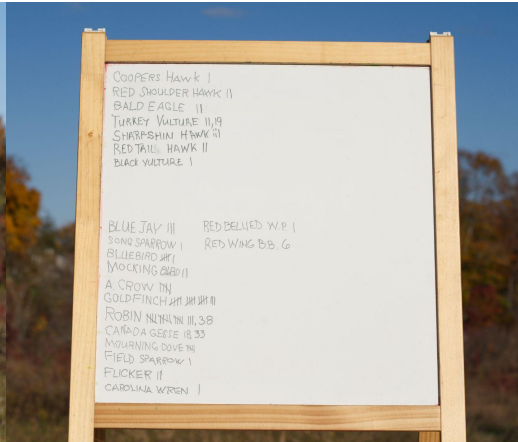 COOPERS HAWK I
RED SHOULDER HAWK II
BALD EAGLE II
TURKEY VULTURE II, 19
SHARPSHIN HAWK III
RED TAIL HAWK II
BLACK VULTURE I
BLUE JAY III
SONG SPARROW I
BLUEBIRD 卌 I
MOCKING BIRD II
A. CROW 卌
GOLDFINCH 卌 卌 卌 III
ROBIN 卌 卌 卌 III, 38
CANADA GEESE 18, 33
MOURNING DOVE 卌
FIELD SPARROW I
FLICKER II
CAROLINA WREN I
RED BELLIED W.P. I
RED WING B.B. 6